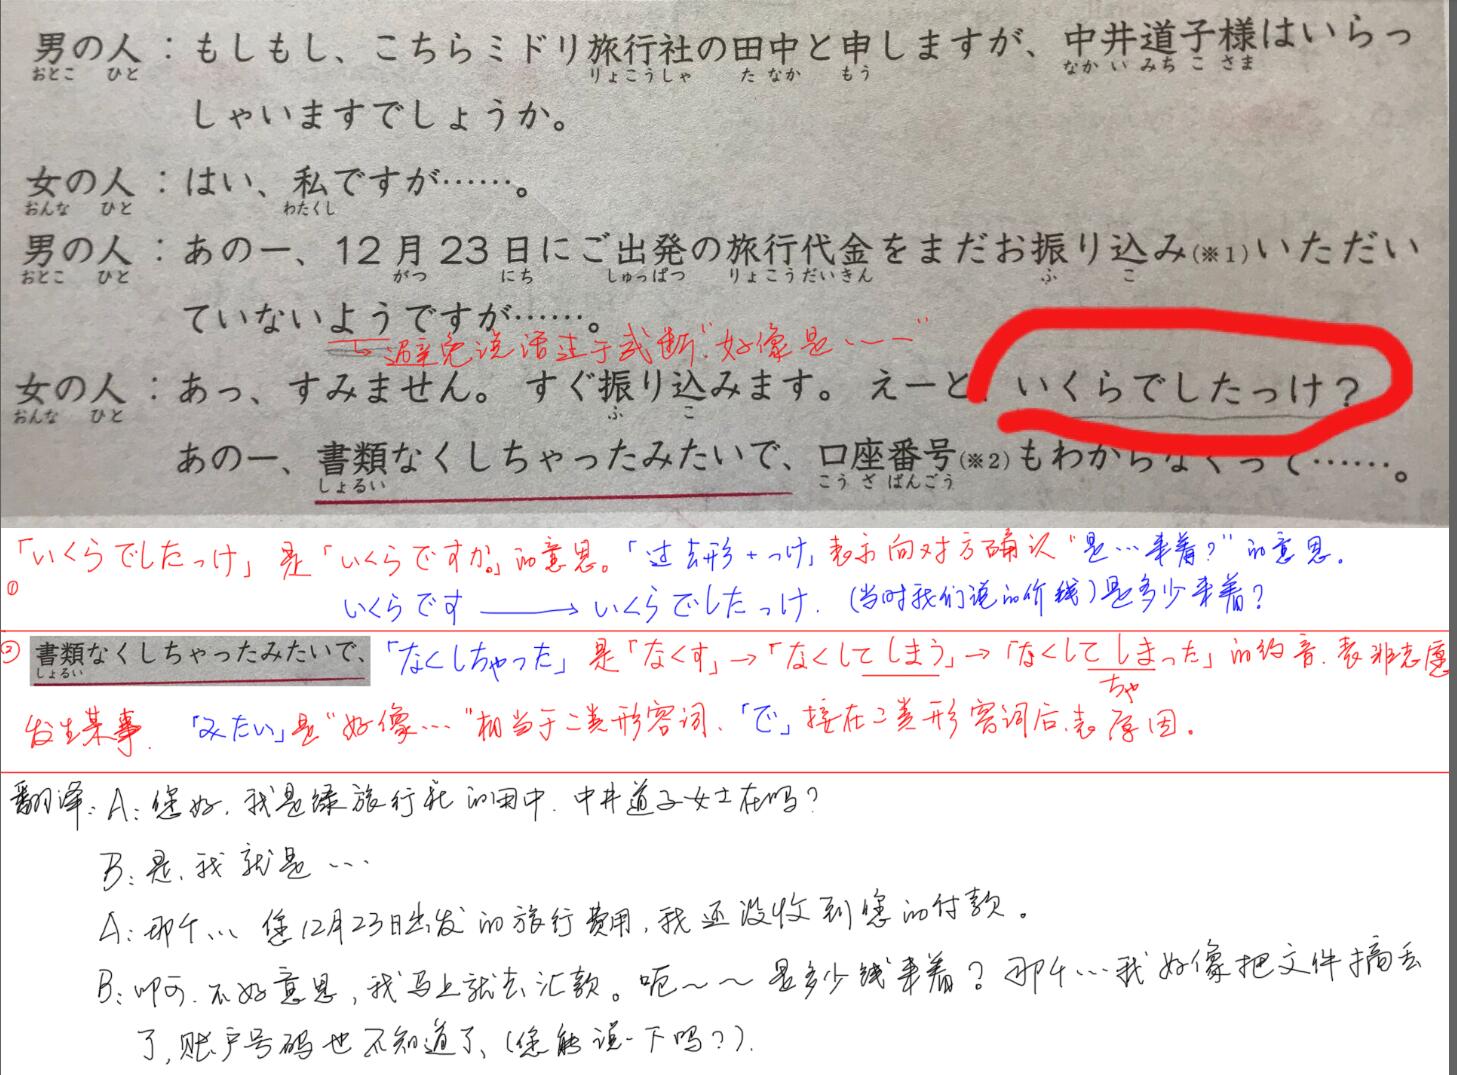 男の人：もしもし、こちらミドリ旅行社の田中と申しますが、中井道子様はいらっ
おとこ ひと りょこうしゃ た なか もう なか い みち こ さま
しゃいますでしょうか。
女の人：はい、私ですが……。
おんな ひと わたくし
男の人：あのー、12月23日にご出発の旅行代金をまだお振り込み(※1)いただい
おとこ ひと がつ にち しゅっぱつ りょこうだいきん ふ こ
ていないようですが……。
避免说话过于武断"好像是……"
女の人：あっ、すみません。すぐ振り込みます。えーと、いくらでしたっけ？
おんな ひと ふ こ
あのー、書類なくしちゃったみたいで、口座番号(※2)もわからなくって……。
しょるい こう ざ ばんごう
① 「いくらでしたっけ」是「いくらですか。」的意思。「过去形+っけ」表示向对方确认"是…来着？"的意思。
いくらです → いくらでしたっけ. (当时我们说的价钱)是多少来着？
② 書類なくしちゃったみたいで、「なくしちゃった」是「なくす」→「なくしてしまう」→「なくしてしまった」的约音.表非志愿
しょるい ちゃ
发生某事.「みたい」是"好像…"相当于二类形容词.「で」接在二类形容词后.表原因。
翻译: A: 您好.我是绿旅行社的田中.中井道子女士在吗？
B: 是.我就是…
A: 那个… 您12月23日出发的旅行费用,我还没收到您的付款。
B: 啊.不好意思,我马上就去汇款。呃~~是多少钱来着？那个…我好像把文件搞丢
了,账户号码也不知道了、(您能说一下吗？).